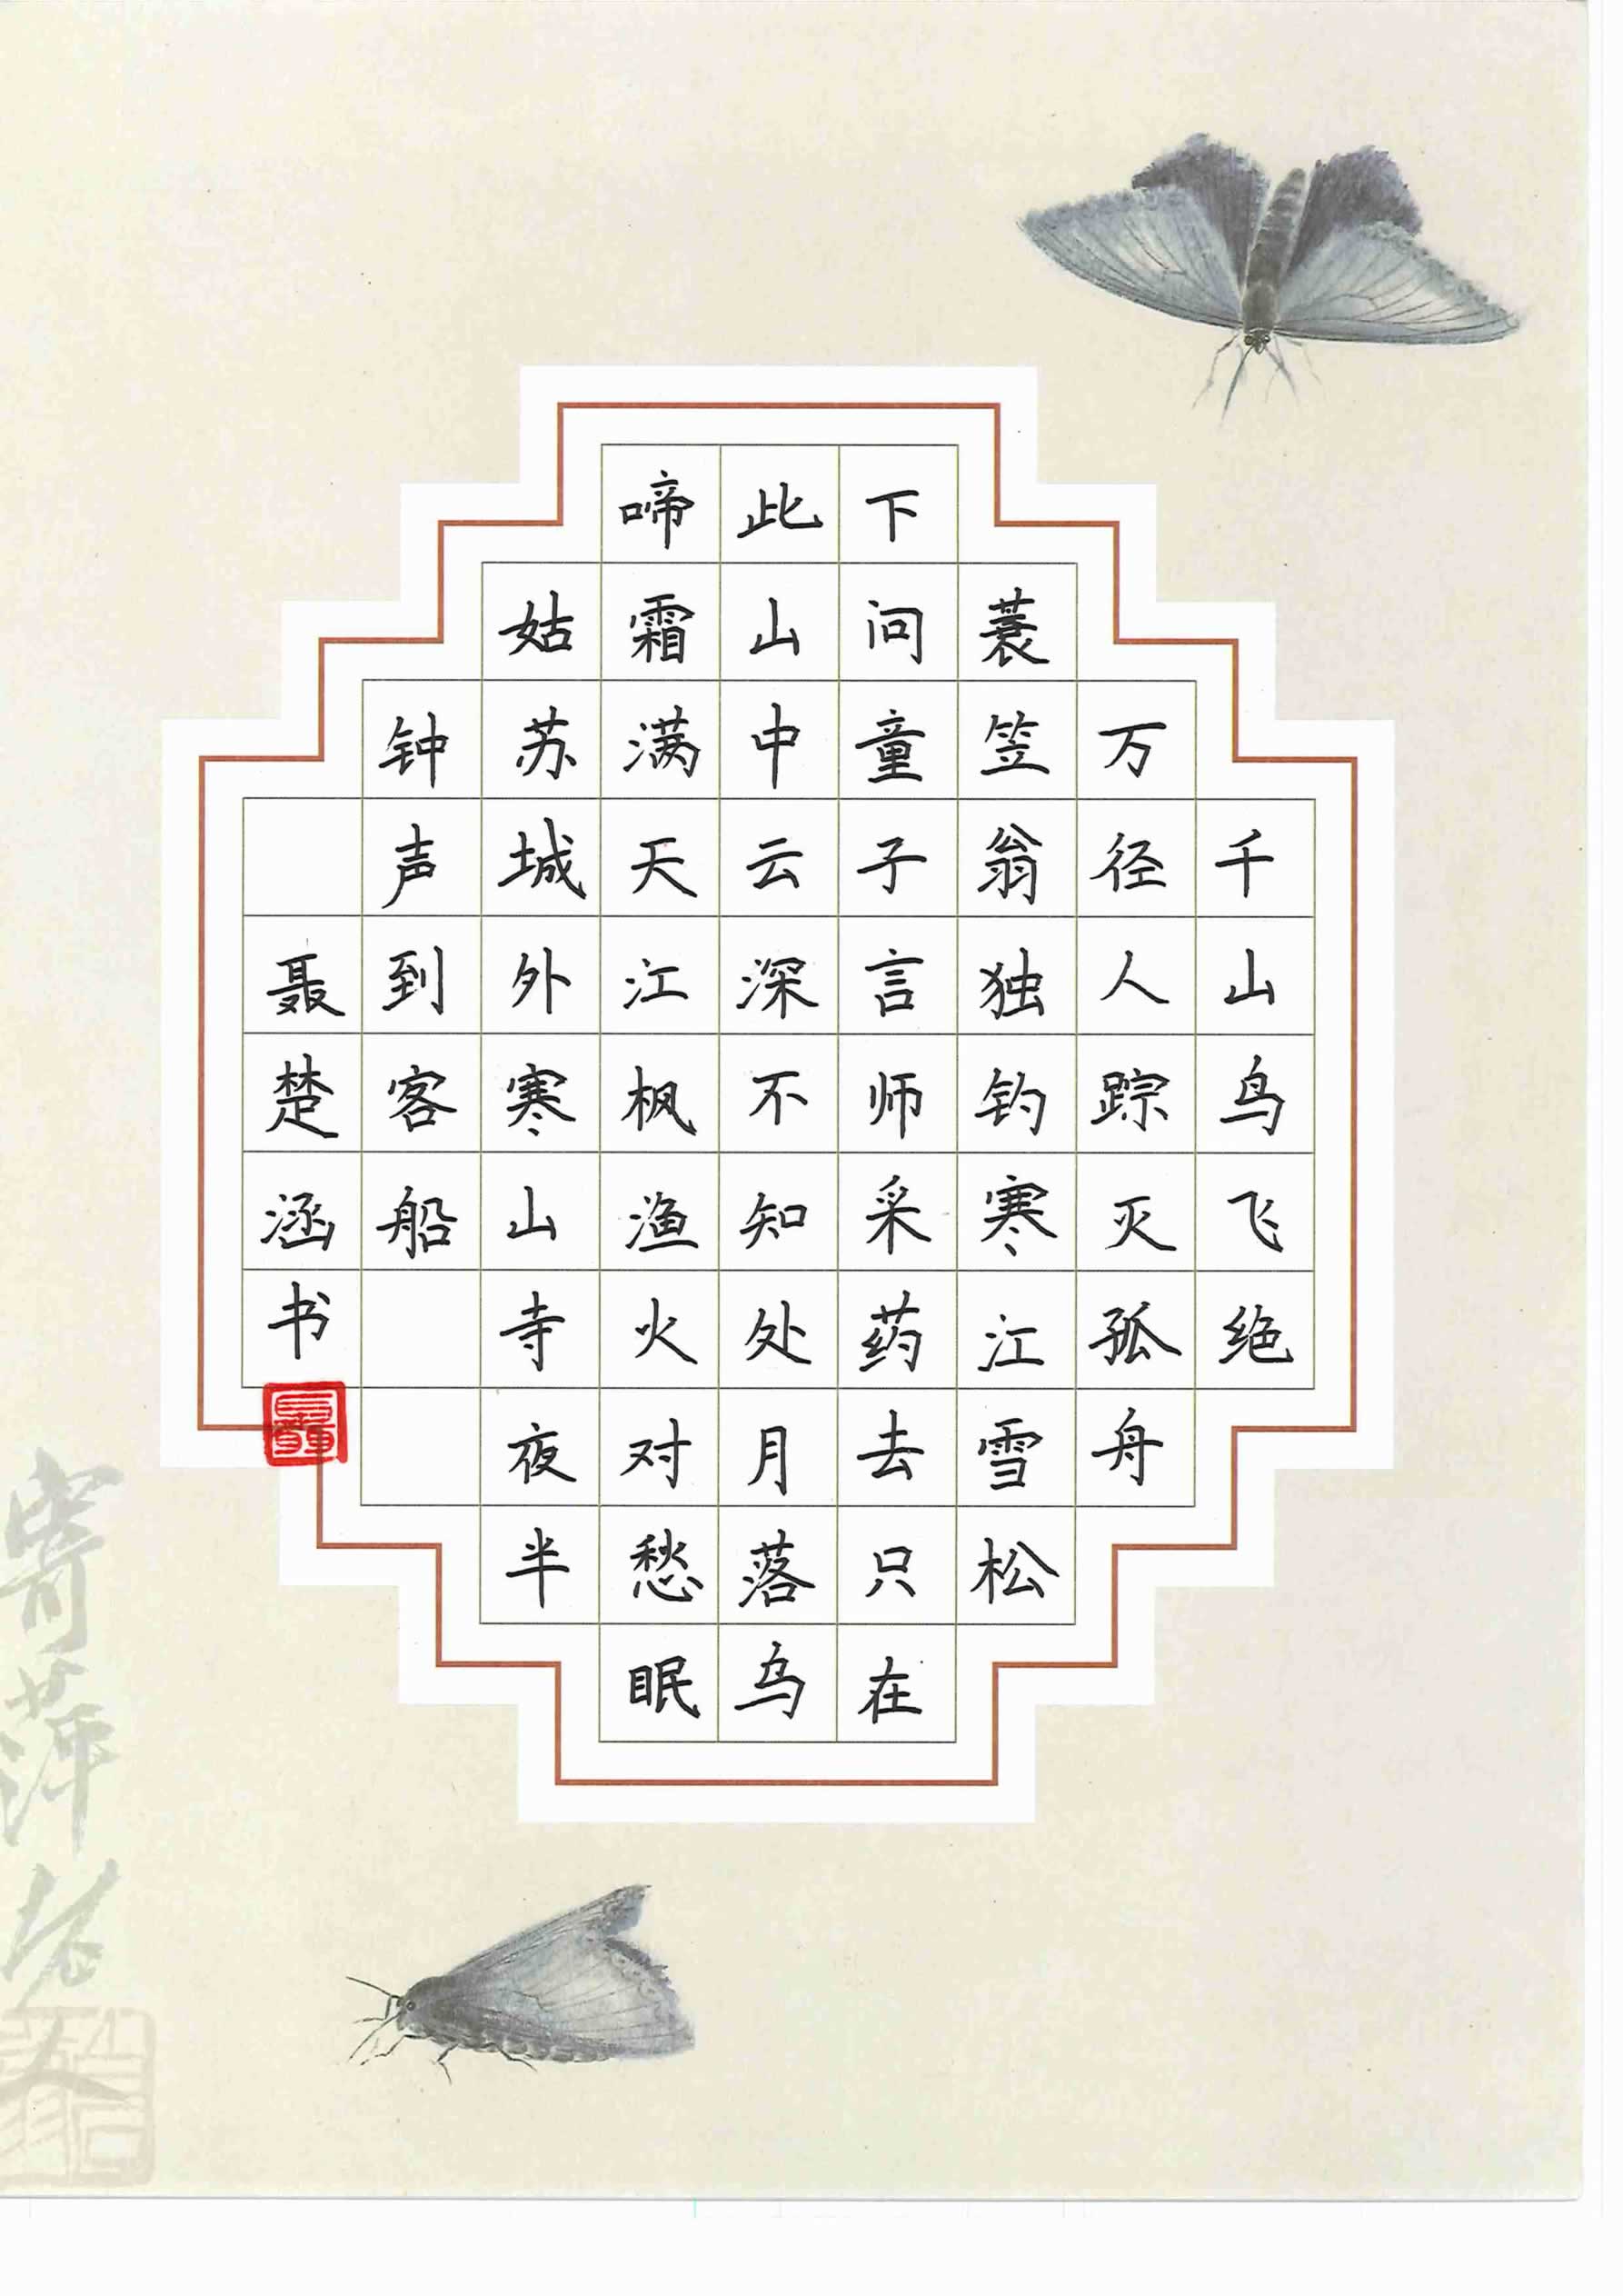 千山鸟飞绝
万径人踪灭孤舟
蓑笠翁独钓寒江雪松
下问童子言师采药去只在
此山中云深不知处月落乌
啼霜满天江枫渔火对愁眠
姑苏城外寒山寺夜半
钟声到客船
聂楚涵书
寄萍老人